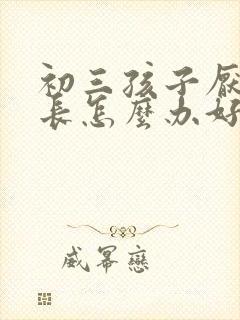 初三孩子厌
长怎麽办好
威幂恋